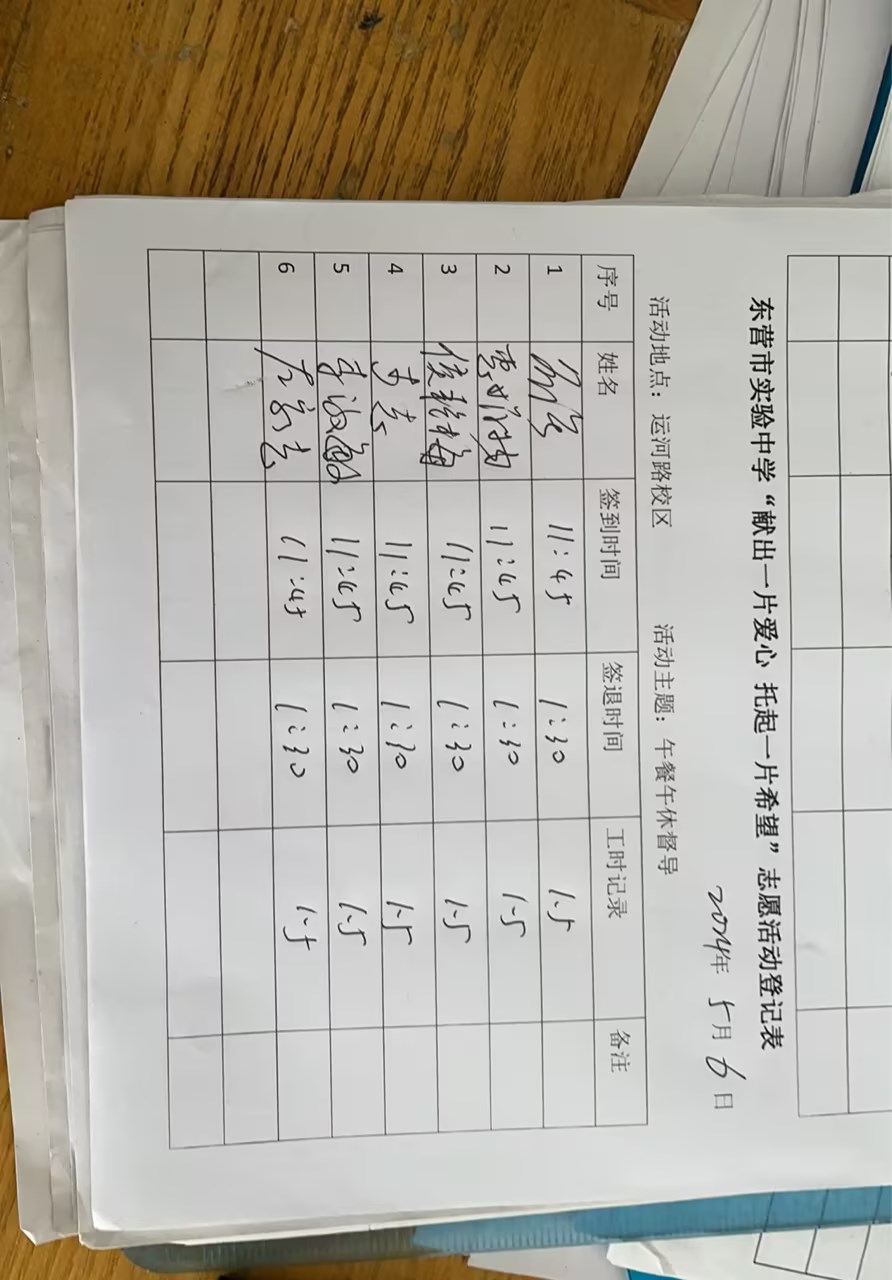 东营市实验中学“献出一片爱心 托起一片希望”志愿活动登记表
2024年 5月 6日
活动地点：运河路校区 活动主题：午餐午休督导
序号 姓名 签到时间 签退时间 工时记录 备注
1 11:45 1:30 1.5
2 11:45 1:30 1.5
3 11:45 1:30 1.5
4 11:45 1:30 1.5
5 11:45 1:30 1.5
6 11:45 1:30 1.5